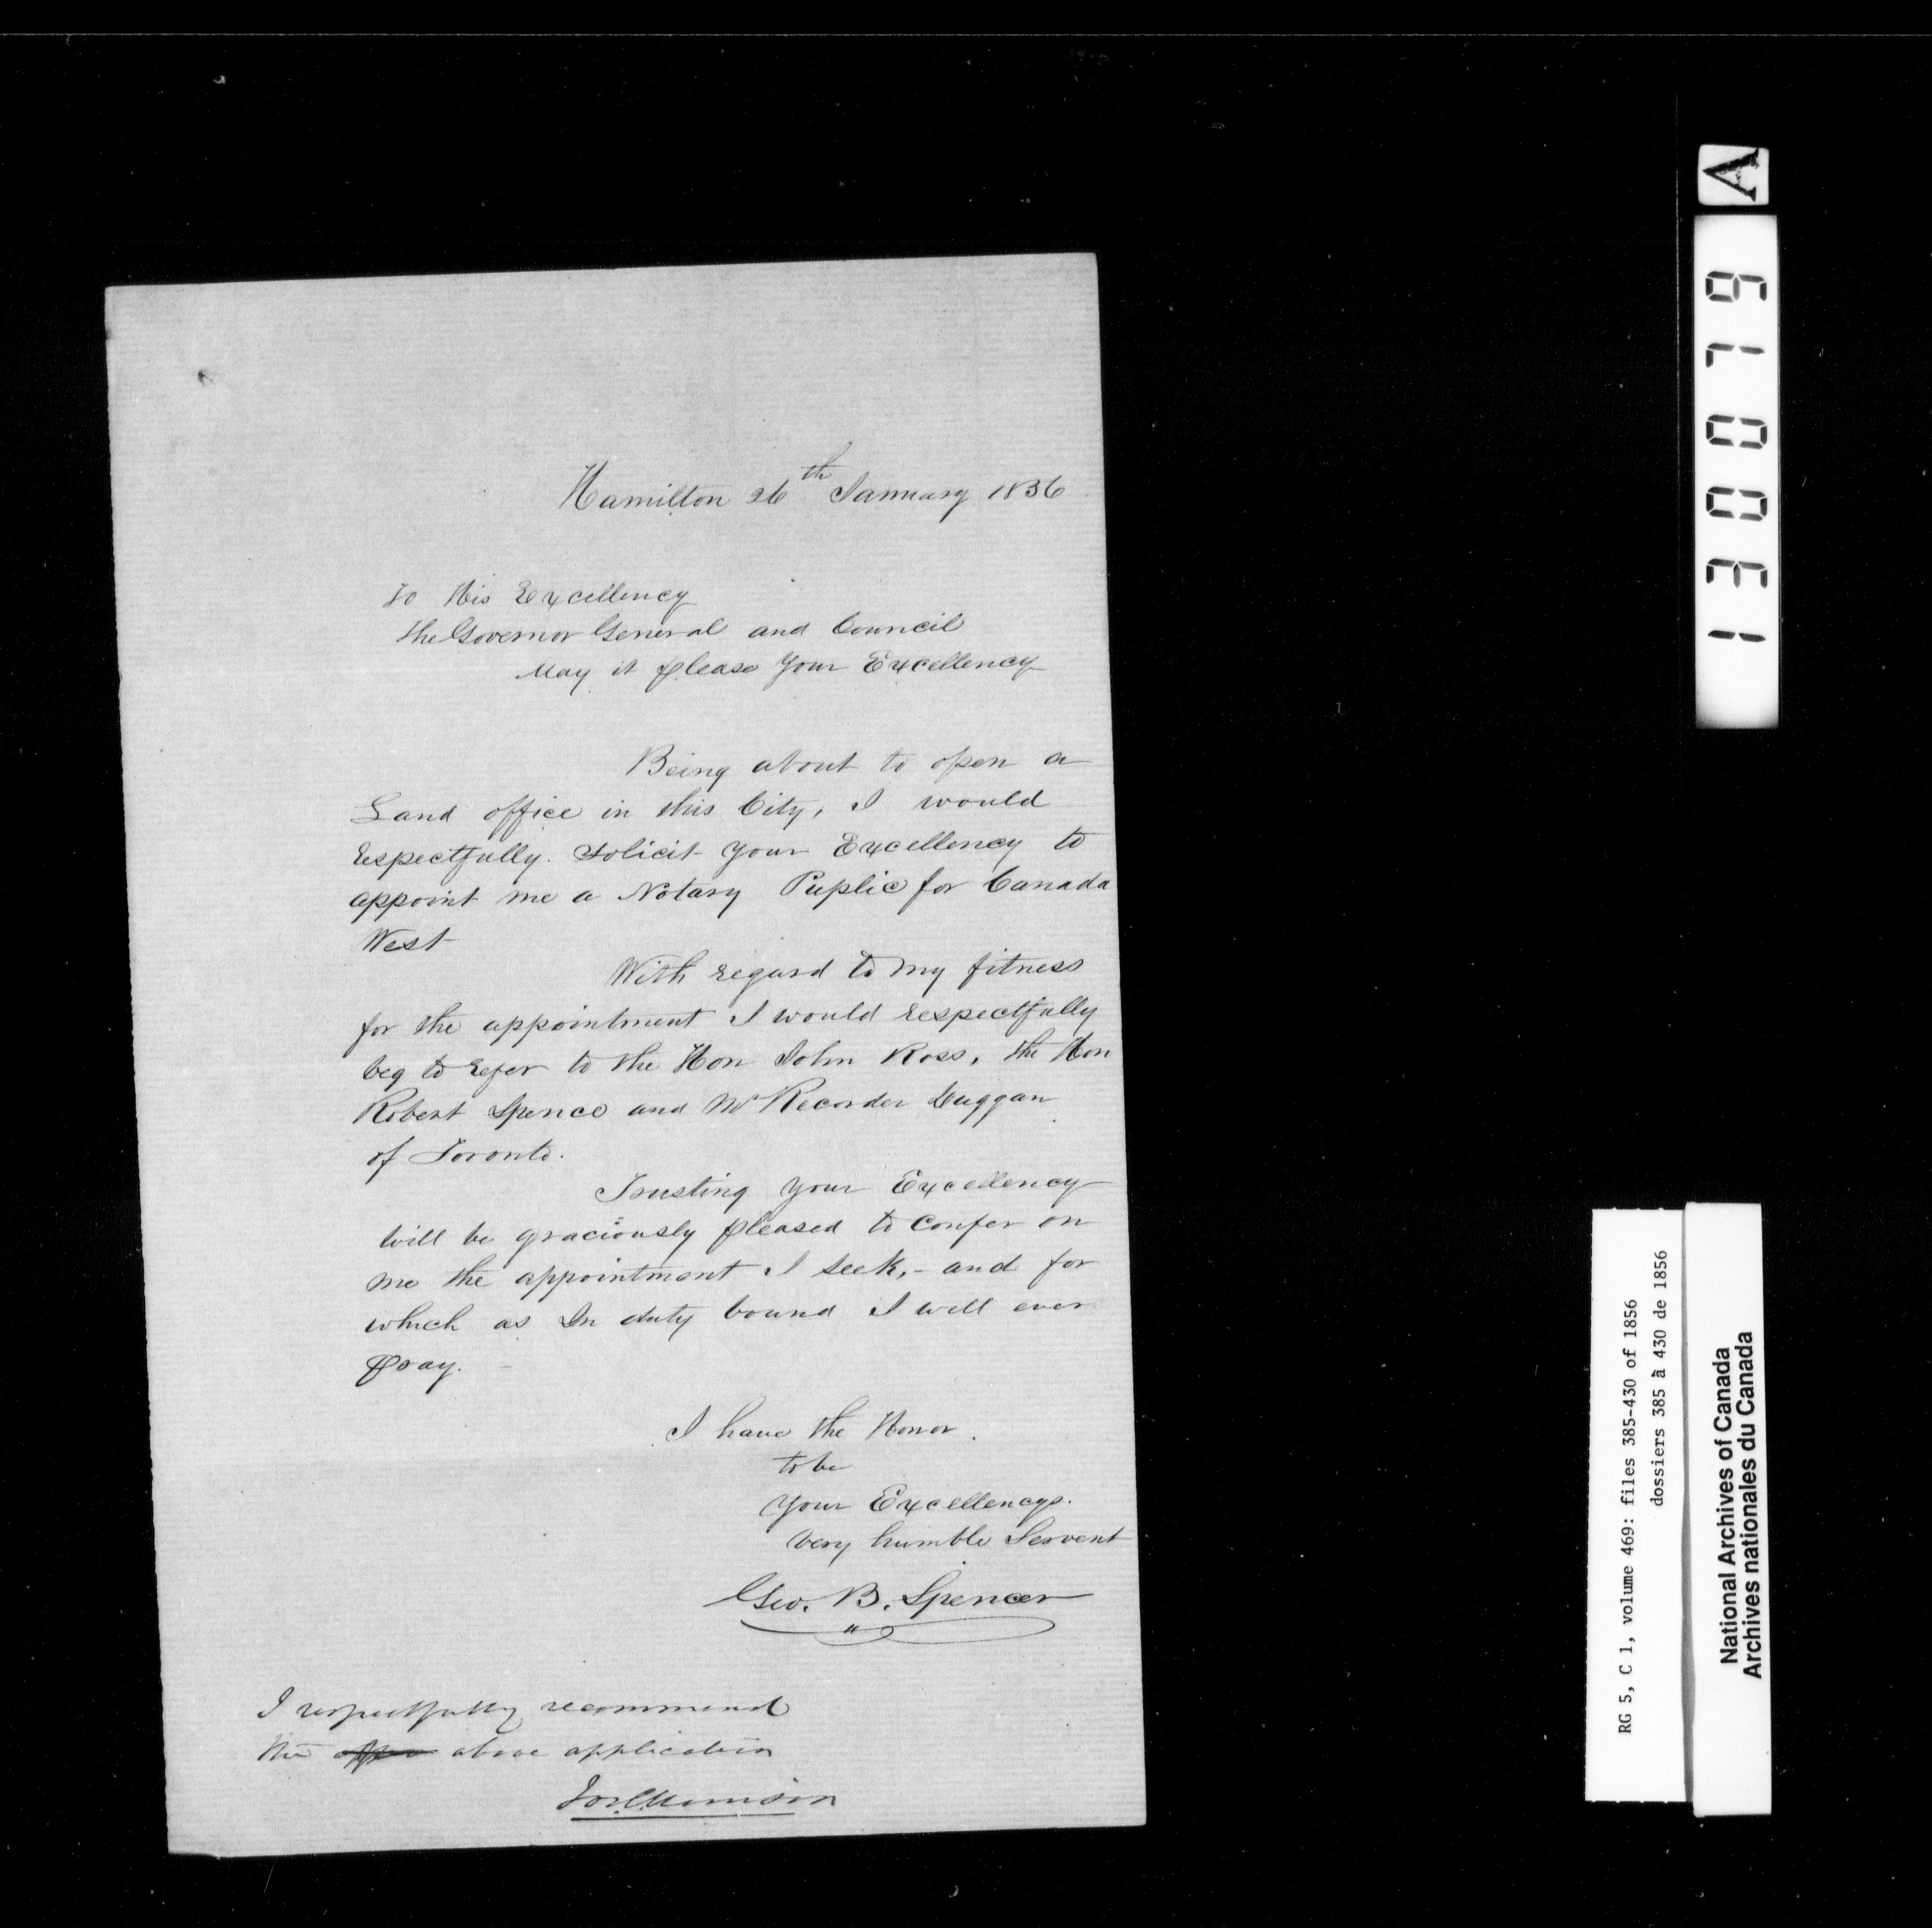 Hamilton 26th January 1856
To His Excellency
the Governor General and Council
May it please Your Excellency
Being about to open a
Land office in this City, I would
respectfully. Solicit Your Excellency to
appoint me a Notary Puplic for Canada
West
With regard to my fitness
for the appointment I would respectfully
beg to refer to the Hon John Ross, the Hon
Robert Spence and Mr Recorder Duggan
of Toronto.
Trusting Your Excellency
will be graciously pleased to Confer on
me the appointment I seek, - and for
which as In duty bound I will ever
Pray. -
I have the Honor.
to be
Your Excellencys.
very humble Servent
Geo. B. Spencer
I respectfully recommend
the above application
Jos. C. Morrison
A
130079
RG 5, C 1, volume 469: files 385-430 of 1856
dossiers 385 à 430 de 1856
National Archives of Canada
Archives nationales du Canada